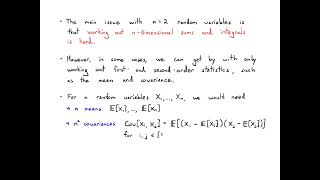 • The main issue with n > 2 random variables is
that working out n-dimensional sums and integrals
is hard.
• However, in some cases, we can get by with only
working out first- and second-order statistics, such
as the mean and covariance.
• For n random variables X₁, ..., Xₙ, we would need
→ n means E[X₁], ..., E[Xₙ]
→ n² covariances Cov[Xᵢ, Xⱼ] = E[(Xᵢ - E[Xᵢ])(Xⱼ - E[Xⱼ])]
for i, j ∈ {1